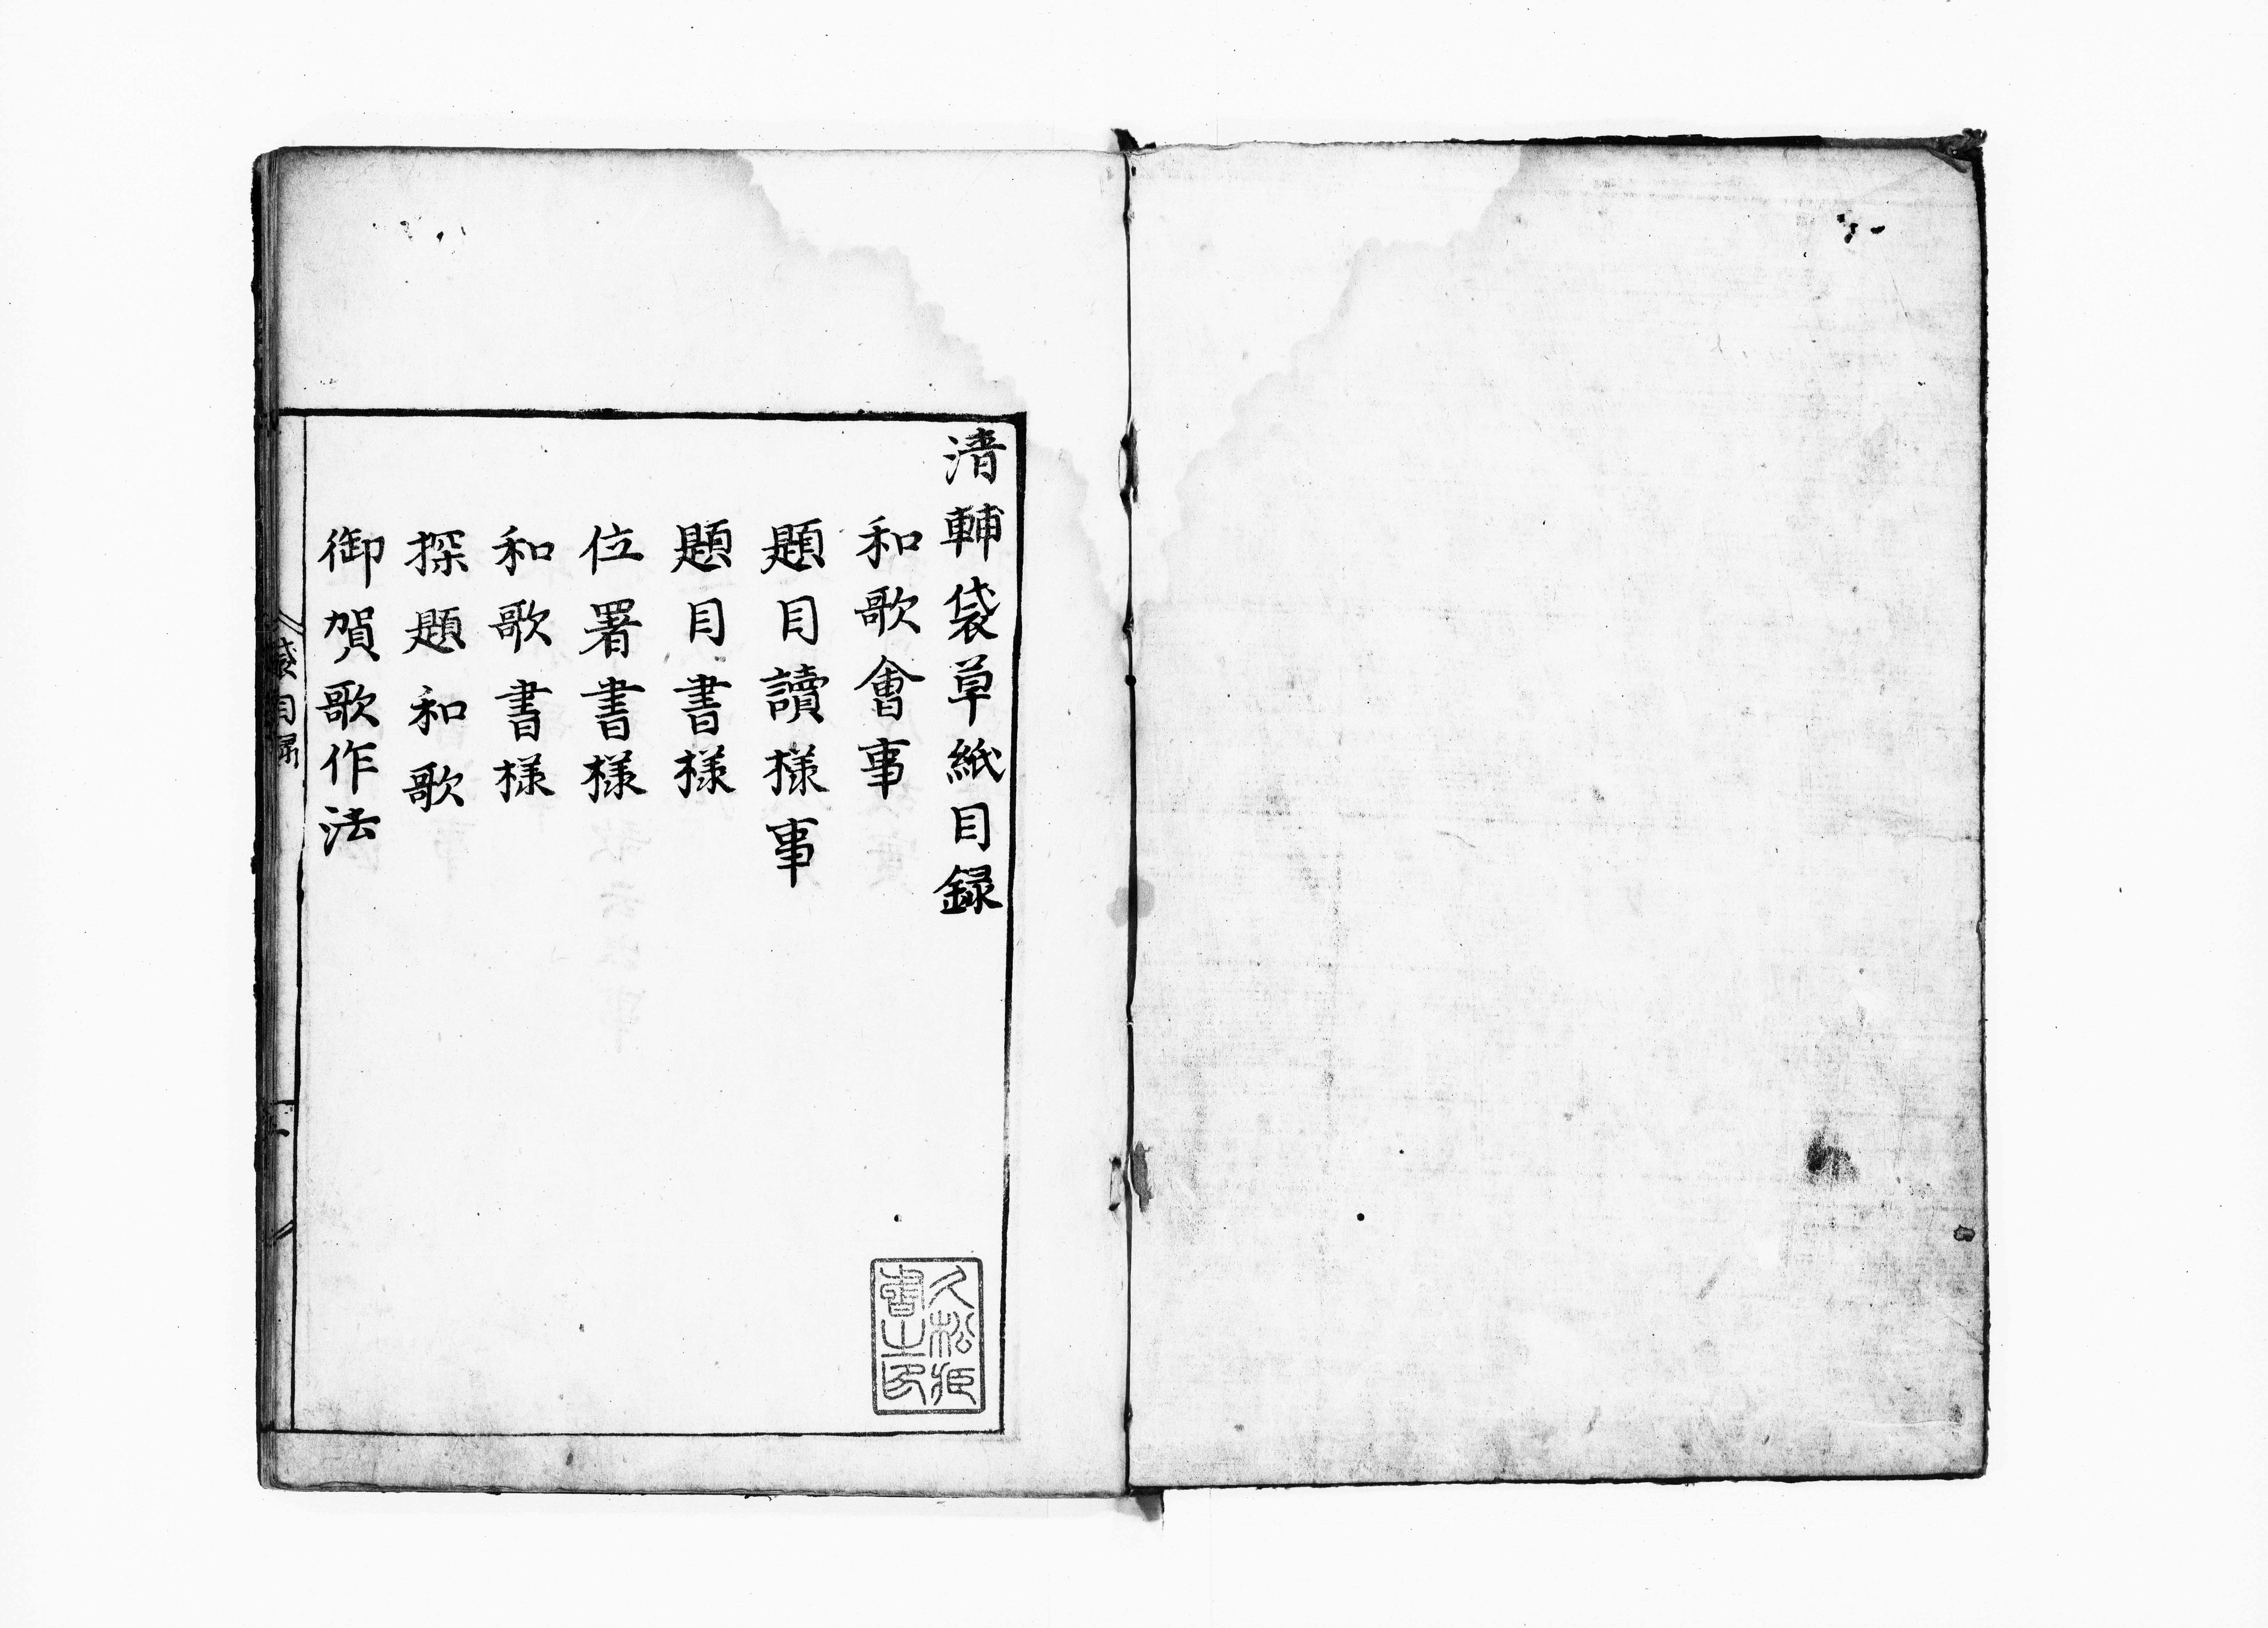 清輔袋草紙目録
和歌會事
題目讀様事
題目書様
位署書様
和歌書様
探題和歌
御賀歌作法
袋目録